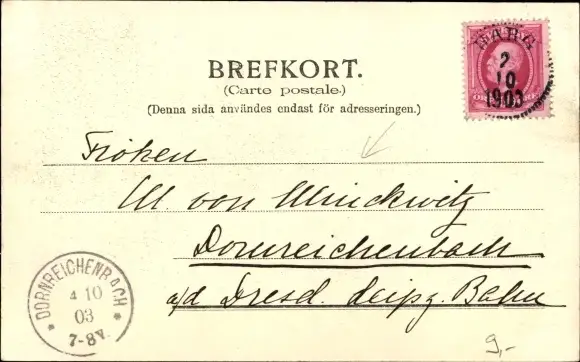 BREFKORT.
(Carte postale.)
(Denna sida användes endast för adresseringen.)
2
10
1903
Fröken
M. von Minckwitz
Dornreichenbach
a/d Dresd. Leipz. Bahn
DORNREICHENBACH
4 10
03
7-8V.
9,-